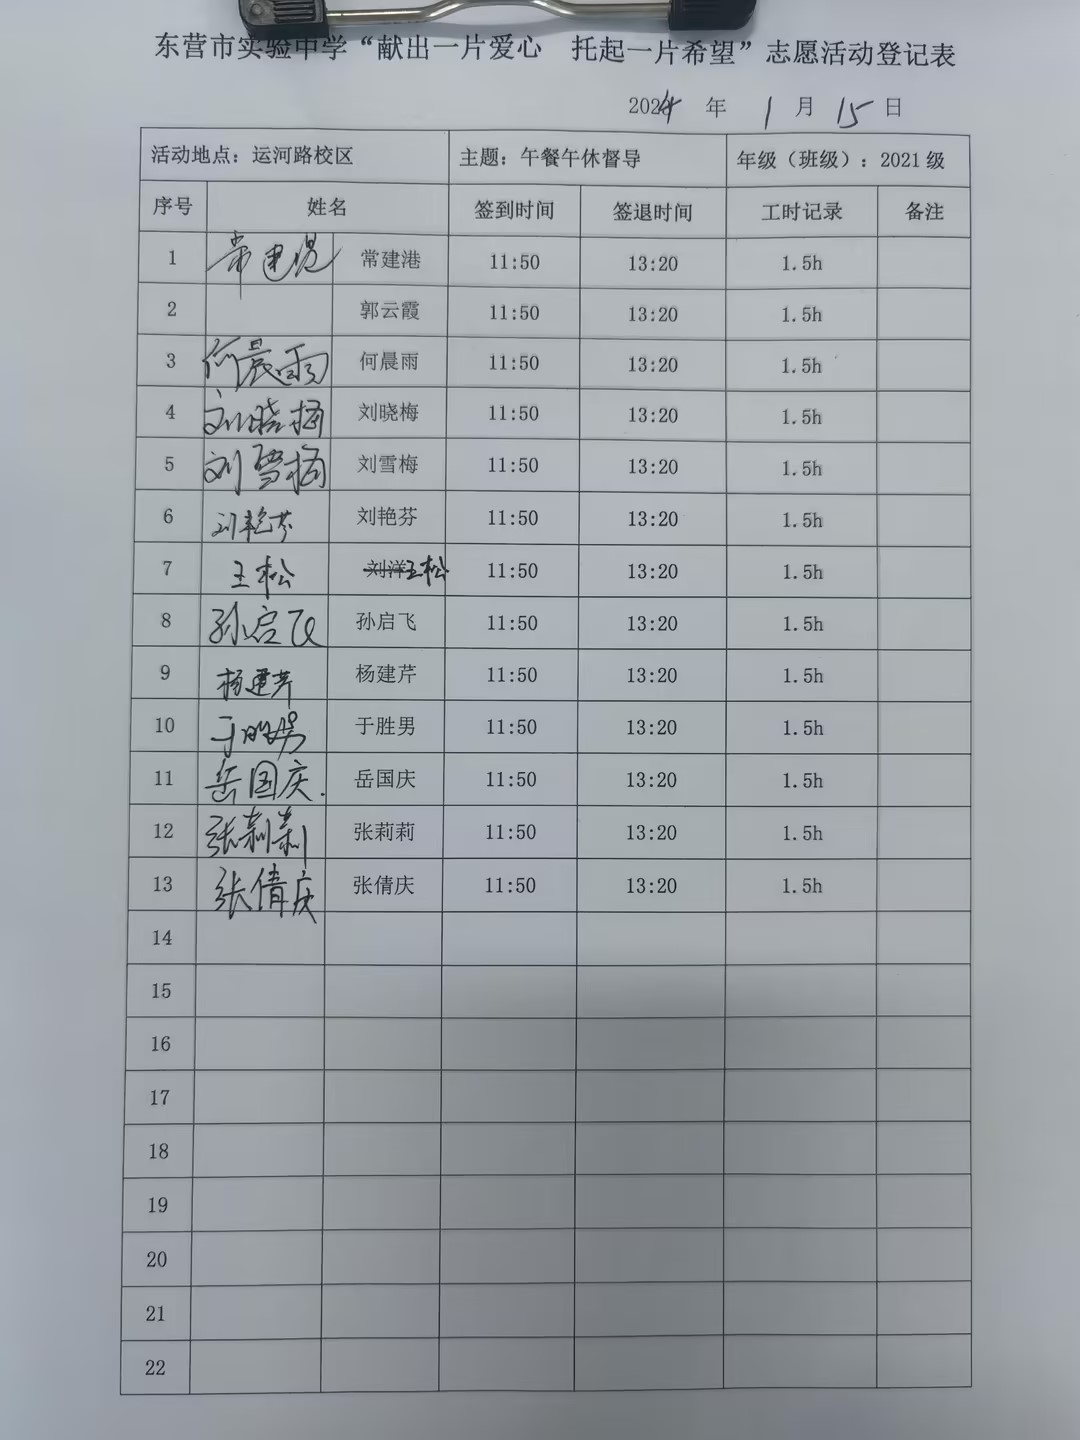 东营市实验中学“献出一片爱心 托起一片希望”志愿活动登记表
2024 年 1 月 15 日
活动地点：运河路校区 主题：午餐午休督导 年级（班级）：2021 级
序号 姓名 签到时间 签退时间 工时记录 备注
1 常建港 常建港 11:50 13:20 1.5h
2 郭云霞 11:50 13:20 1.5h
3 何晨雨 何晨雨 11:50 13:20 1.5h
4 刘晓梅 刘晓梅 11:50 13:20 1.5h
5 刘雪梅 刘雪梅 11:50 13:20 1.5h
6 刘艳芬 刘艳芬 11:50 13:20 1.5h
7 王松 刘洋王松 11:50 13:20 1.5h
8 孙启飞 孙启飞 11:50 13:20 1.5h
9 杨建芹 杨建芹 11:50 13:20 1.5h
10 于胜男 于胜男 11:50 13:20 1.5h
11 岳国庆. 岳国庆 11:50 13:20 1.5h
12 张莉莉 张莉莉 11:50 13:20 1.5h
13 张倩庆 张倩庆 11:50 13:20 1.5h
14
15
16
17
18
19
20
21
22